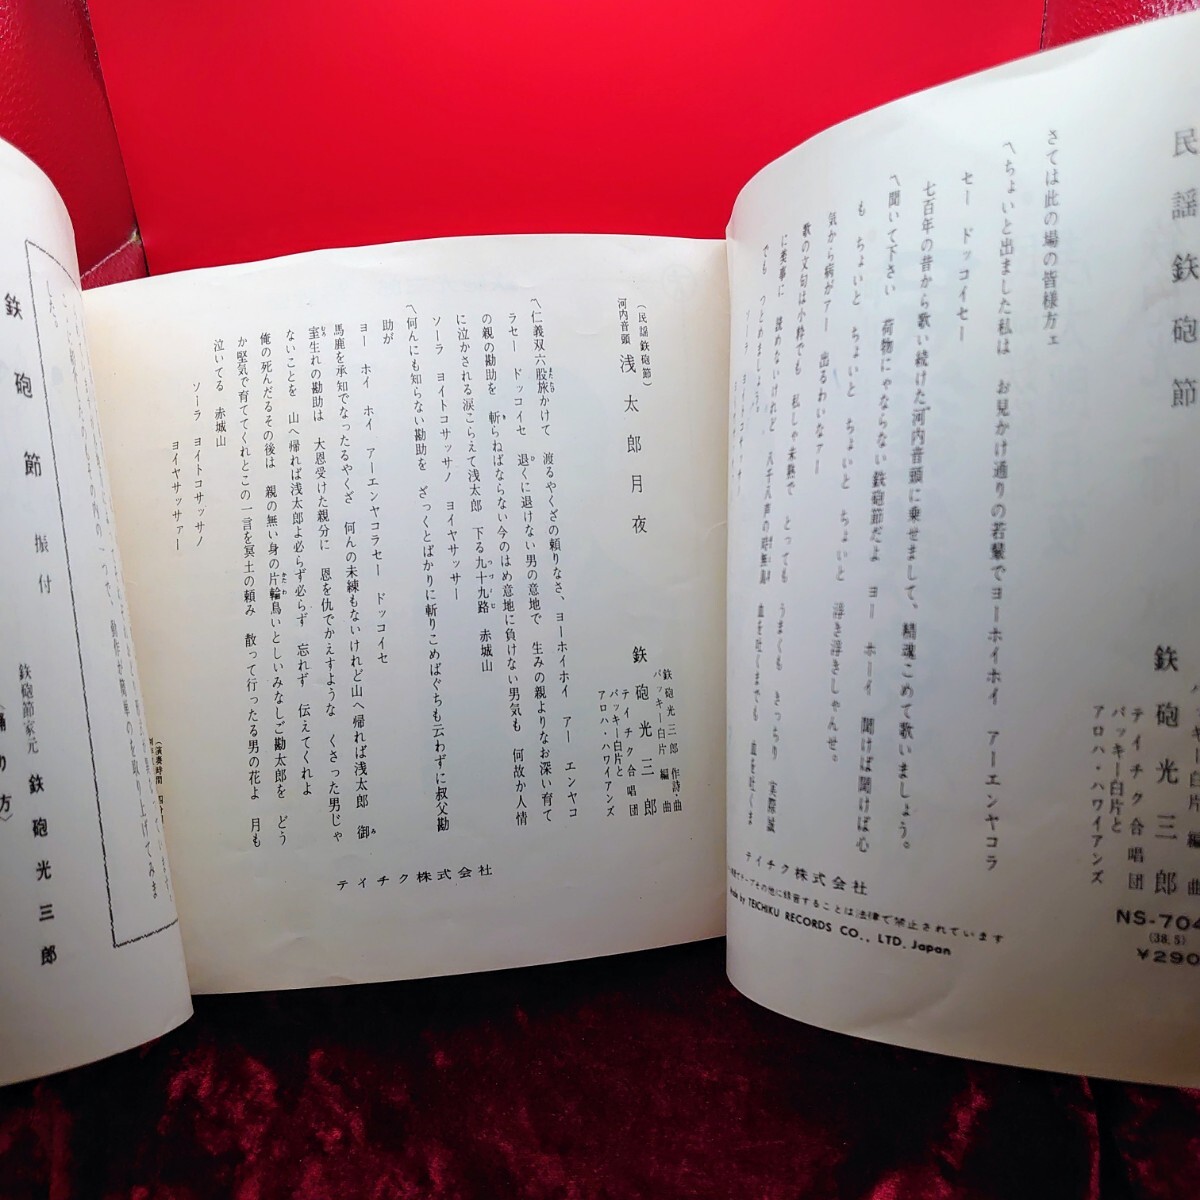 民謡 鉄砲節
鉄砲光三郎
バッキー白片 編曲
テイチク合唱団
バッキー白片と
アロハ・ハワイアンズ
NS-704
(38.5)
¥290
さては此の場の皆様方ェ
〽ちょいと出ました私は お見かけ通りの若輩でヨーホイホイ アーエンヤコラ
セー ドッコイセー
七百年の昔から歌い続けた河内音頭に乗せまして、精魂こめて歌いましょう。
〽聞いて下さい 荷物にゃならない鉄砲節だよ ヨー ホーイ 聞けば聞けば心
も ちょいと ちょいと ちょいと ちょいと 浮き浮きしゃんせ。
気から病がアー 出るわいなァー
歌の文句は小粋でも 私しゃ未熟で とっても うまくも きっちり 実際誠
に美事に 読めないけれど 八千八声の時鳥 血を吐くまでも 血を吐くま
でも つとめましょう。
テイチク株式会社
テープその他に録音することは法律で禁止されています
Made by TEICHIKU RECORDS CO., LTD. Japan
(民謡鉄砲節)
河内音頭 浅太郎月夜
鉄砲光三郎 作詩・曲
バッキー白片 編曲
鉄砲光三郎
テイチク合唱団
バッキー白片と
アロハ・ハワイアンズ
〽仁義双六股旅かけて 渡るやくざの頼りなさ、ヨーホイホイ アー エンヤコ
ラセー ドッコイセ 退くに退けない男の意地で 生みの親よりなお深い育て
の親の勘助を 斬らねばならない今のはめ意地に負けない男気も 何故か人情
に泣かされる涙こらえて浅太郎 下る九十九路 赤城山
ソーラ ヨイトコサッサノ ヨイヤサッサー
〽何んにも知らない勘助を ざっくとばかりに斬りこめばぐちも云わずに叔父勘
助が
ヨー ホイ ホイ アーエンヤコラセー ドッコイセ
馬鹿を承知でなったるやくざ 何んの未練もないけれど山へ帰れば浅太郎 御
室生れの勘助は 大恩受けた親分に 恩を仇でかえすような くさった男じゃ
ないことを 山へ帰れば浅太郎よ必らず必らず 忘れず 伝えてくれよ
俺の死んだるその後は 親の無い身の片輪鳥いとしいみなしご勘太郎を どう
か堅気で育ててくれとこの一言を冥土の頼み 散って行ったる男の花よ 月も
泣いてる 赤城山
ソーラ ヨイトコサッサノ
ヨイヤサッサァー
テイチク株式会社
動作が簡単のを取り上げてみま
した。
鉄砲節 振付
鉄砲節家元 鉄砲光三郎
(踊り方)